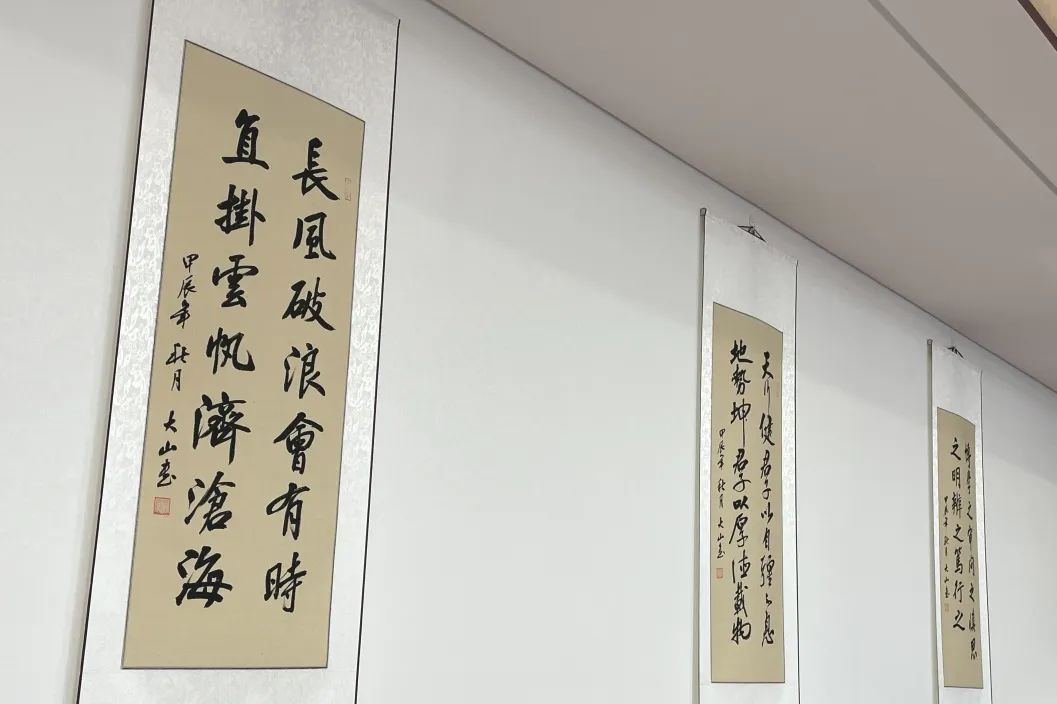 長風破浪會有時
直掛雲帆濟滄海
甲辰年秋月大山书
天行健君子以自彊々息
地勢坤君子以厚德載物
甲辰年秋月大山书
博學之审问之慎思
之明辨之篤行之
甲辰年秋月大山书